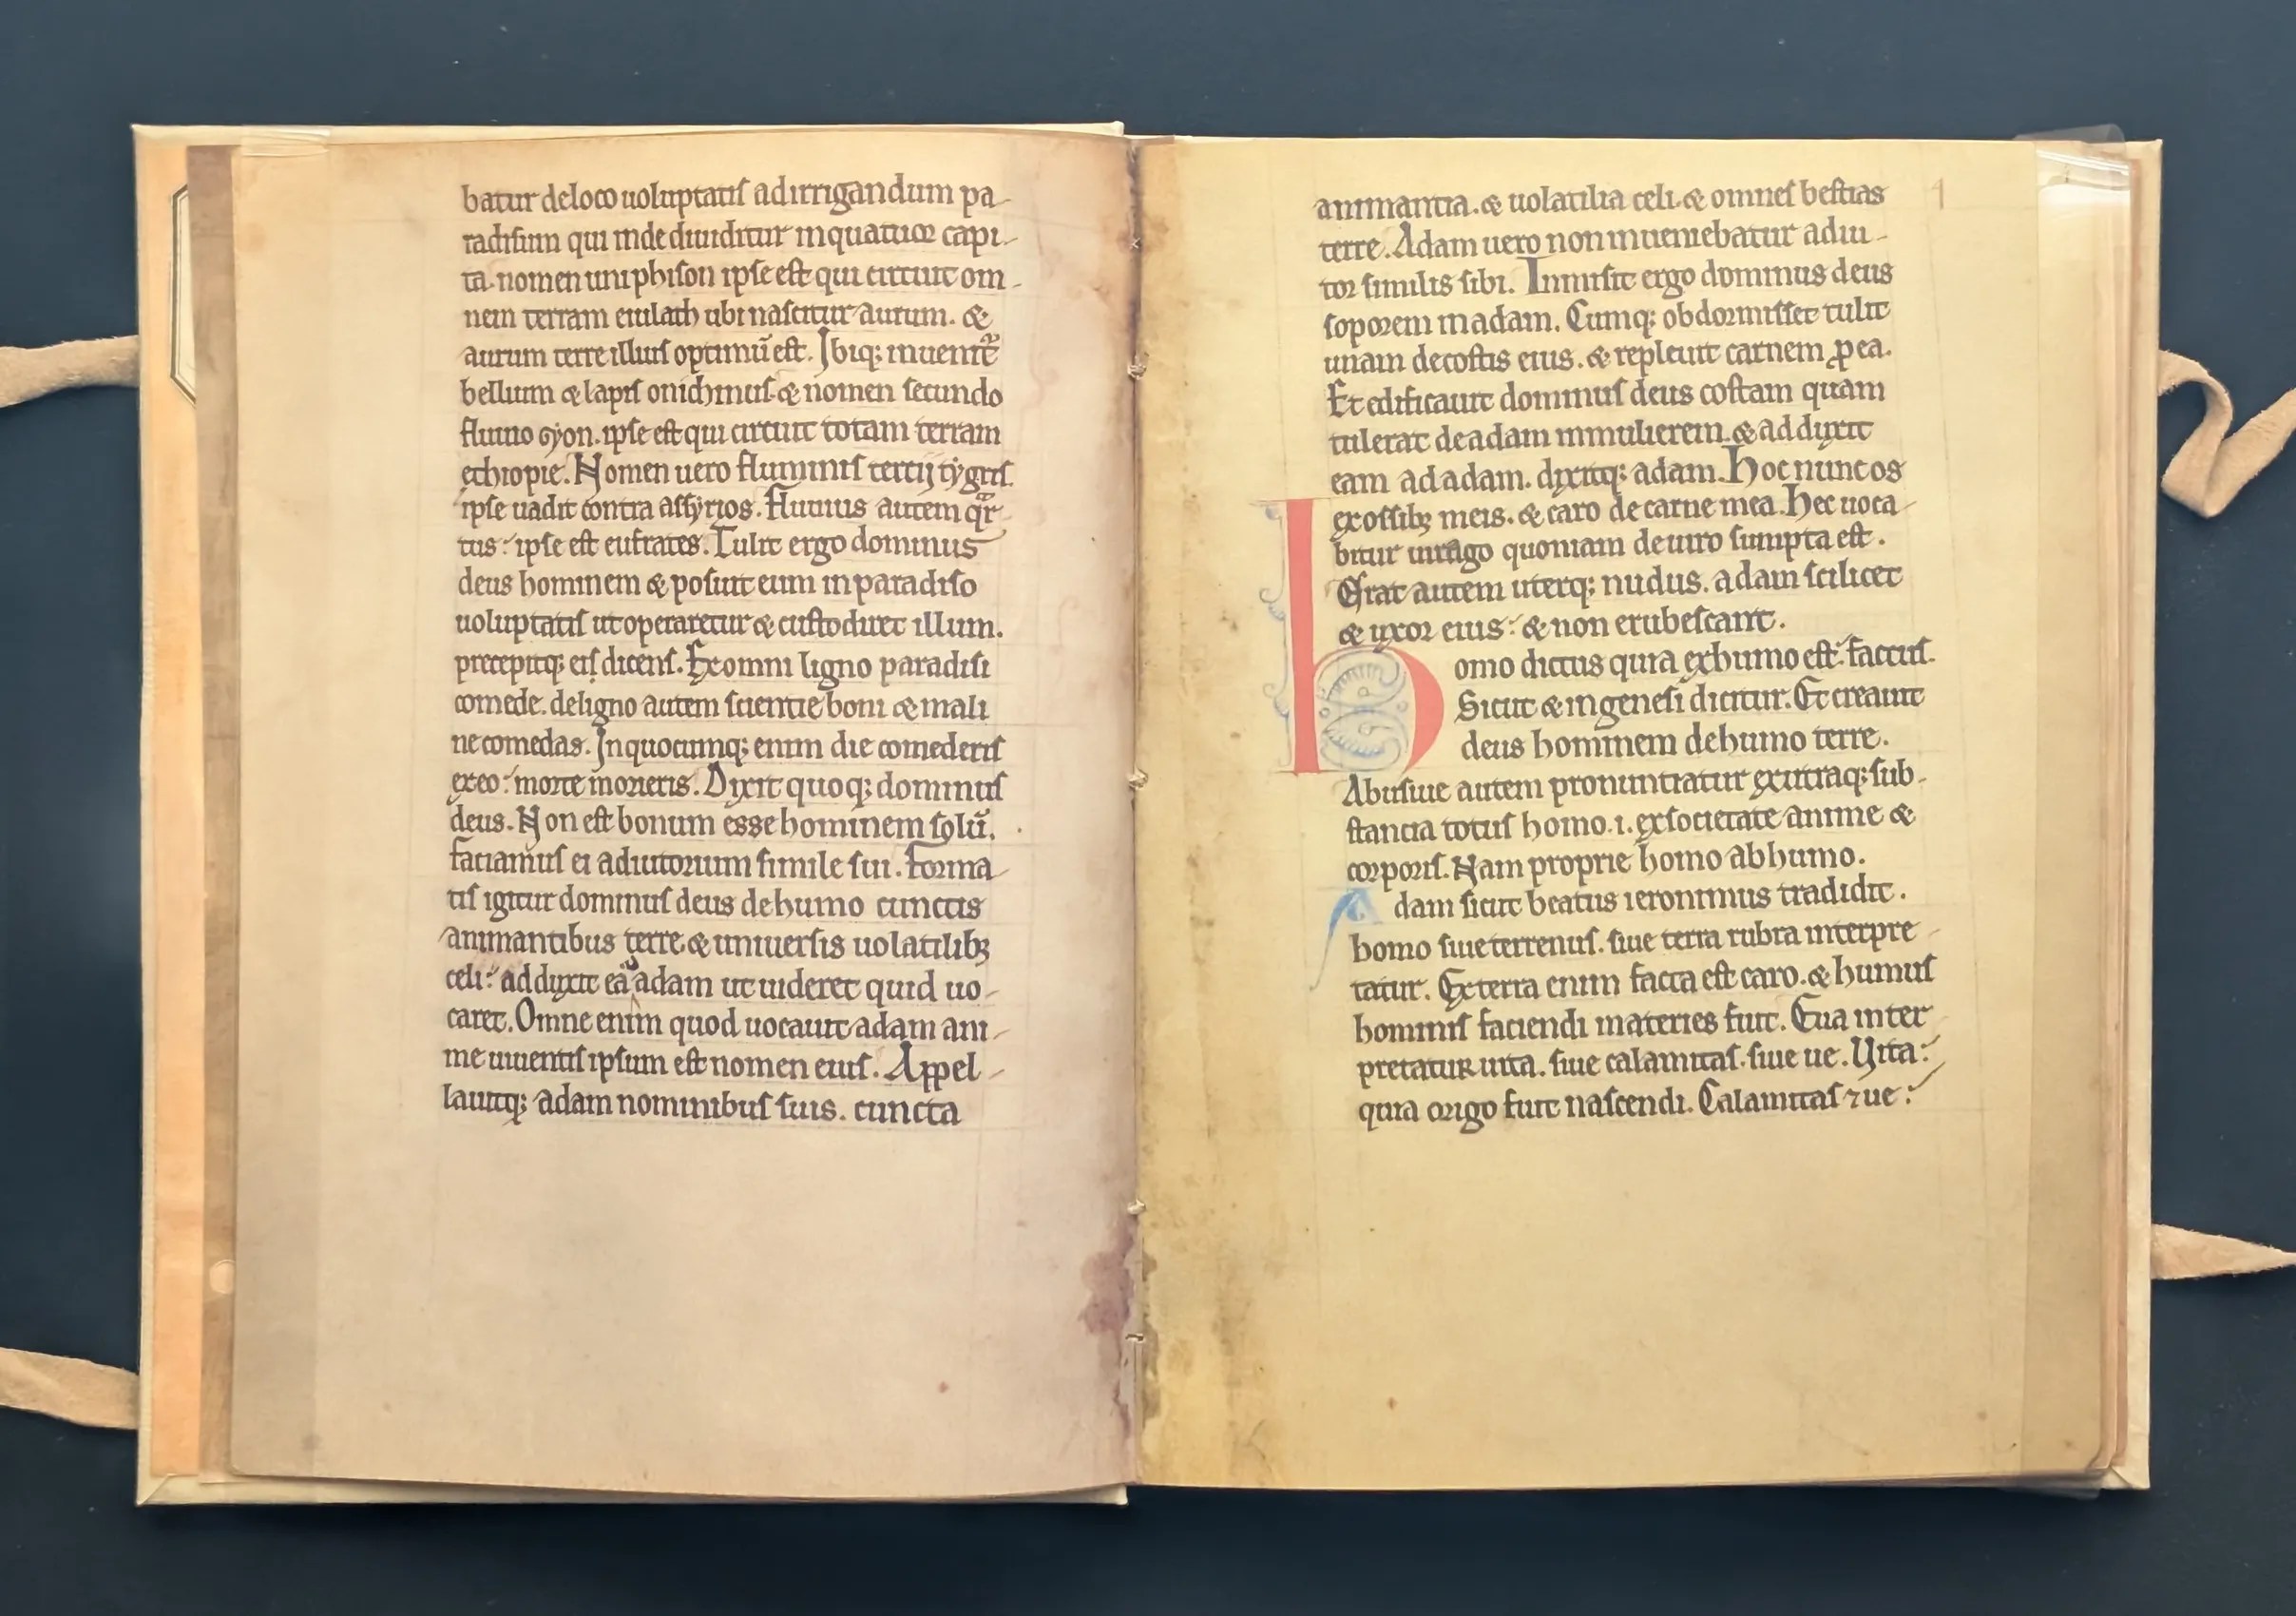 batur deloco uoluptatiſ adirrigandum pa-
radiſum qui inde diuiditur inquatuor capi-
ta. nomen uni phiſon ipſe eſt qui circuit om-
nem terram euilath ubi naſcitur aurum. &
aurum terre illiuſ optimū eſt. Ibiq; inuenit᷑
bellium & lapiſ onichinuſ. & nomen ſecundo
fluuio gyon. ipſe eſt qui circuit totam terram
ethiopie. Nomen uero fluminiſ tercij tẏgriſ.
ipſe uadit contra aſſyrios. Fluuius autem qᷓr-
tus: ipſe eſt eufrates. Tulit ergo dominus
deus hominem & poſuit eum inparadiſo
uoluptatiſ ut operaretur & cuſtodiret illum.
precepitq; eiſ dicenſ. Exomni ligno paradiſi
comede. deligno autem ſcientie boni & mali
ne comedas. Inquocumq; enim die comederiſ
exeo: morte morieris. Dixit quoq; dominuſ
deus. Non eſt bonum esse hominem ſolū.
faciamuſ ei adiutorium ſimile ſui. Forma-
tiſ igitur dominuſ deus dehumo cunctis
animantibus terre & uniuerſis uolatilibꝫ
celi: adduxit ea adam ut uideret quid uo-
caret. Omne enim quod uocauit adam ani-
me uiuentiſ ipſum eſt nomen eiuſ. Appel-
lauitq; adam nominibuſ ſuis. cuncta
animantia. & uolatilia celi. & omneſ beſtias
terre. Adam uero non inueniebatur adiu-
tor ſimilis ſibi. Inmiſit ergo dominus deus
ſoporem inadam. Cumq; obdormiſſet tulit
unam decoſtis eius. & repleuit carnem ꝓ ea.
Et edificauit dominuſ deus coſtam quam
tulerat deadam inmulierem. & adduxit
eam ad adam. dixitq; adam. Hoc nunc os
exoſſibꝫ meis. & caro de carne mea. Hec uoca-
bitur uirago quoniam deuiro ſumpta eſt.
Erat autem uterq; nudus. adam ſcilicet
& uxor eius: & non erubeſcant.
homo dictus quia exhumo eſt factuſ.
Sicut & ingeneſi dicitur. Et creauit
deus hominem dehumo terre.
Abuſiue autem pronuntiatur exutraq; ſub-
ſtancia totuſ homo .i. exſocietate anime &
corporiſ. Nam proprie homo abhumo.
Adam ſicut beatus ieronimus tradidit.
homo ſiue terrenuſ. ſiue terra rubra interpre-
tatur. Exterra enim facta eſt caro. & humuſ
hominiſ faciendi materies fuit. Eua inter-
pretatur uita. ſiue calamitaſ. ſiue ue. Uita:
quia origo fuit naſcendi. Calamitaſ ⁊ ue: